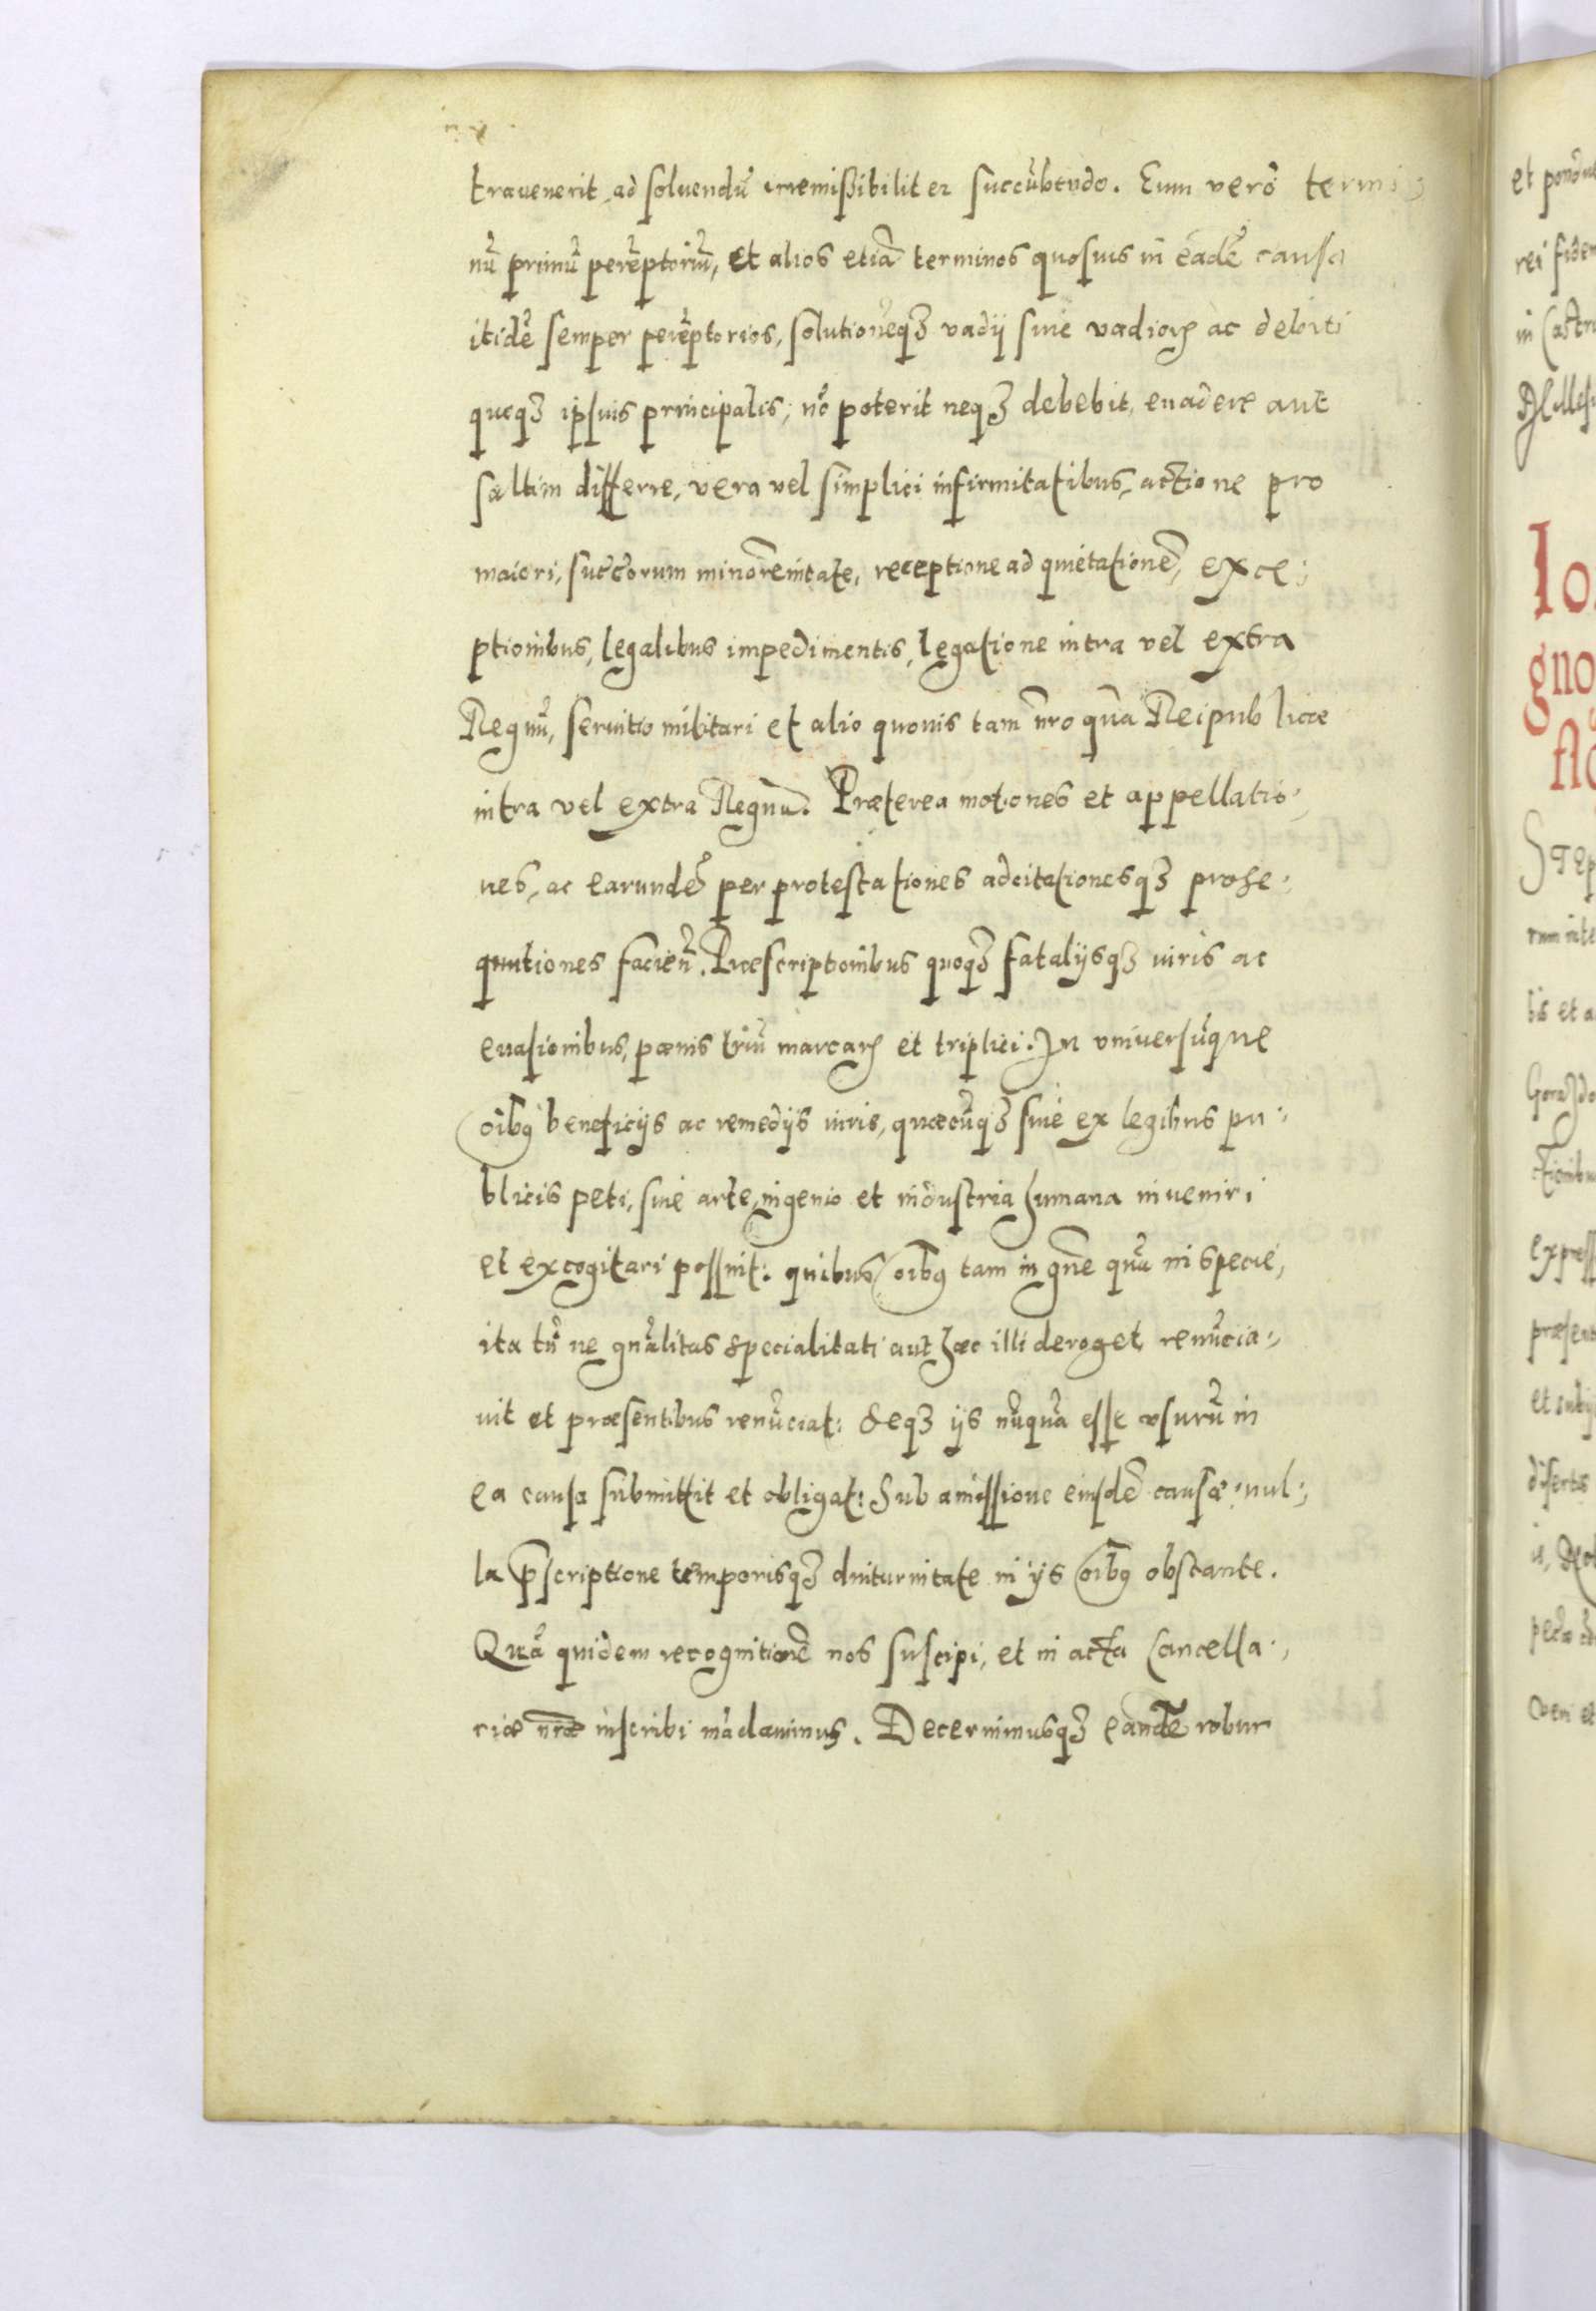 trauenerit, ad soluendũ irremißibiliter succũbẽdo. Eum vero termi⸗
nũ primũ perẽptoriũ, et alios etiã terminos quosuis in eadẽ causa
itidẽ semper perẽptorios, solutionẽqȝ vadij siue vadioꝝ ac debiti
quoqȝ ipsius principalis, nõ poterit neqȝ debebit, euadere aut
saltim differre, vera vel simplici infirmitatibus, actione pro
maiori, succorum minorẽnitate, receptione ad quietationẽ, exce⸗
ptionibus, legalibus impedimentis, legatione intra vel extra
Regnũ, seruitio militari et alio quouis tam nr̃o quã Reipublicæ
intra vel extra Regnũ. Præterea motiones et appellatio⸗
nes, ac earundẽ per protestationes adcitationesqȝ prose⸗
quutiones facien̄. Præscriptionibus quoqȝ fatalijsqȝ iuris ac
euasionibus, pœnis triũ marcaꝝ et triplici. In vniversũque
oĩbꝰ beneficijs ac remedijs iuris, quæcũqȝ siue ex legibus pu⸗
blicis peti, siue arte, ingenio et industria humana inueniri
et excogitari possint: quibus oĩbꝰ tam in gñe quã in specie,
ita tñ ne gnãlitas specialitati aut hæc illi deroget renũcia⸗
uit et præsentibus renũciat: Seqȝ ijs nũquã esse vsurũ in
ea causa submittit et obligat: Sub amissione eiusdẽ causæ: nul⸗
la p̄scriptione temporisqȝ diuturnitate in ijs oĩbꝰ obstante.
Quã quidem recognitionẽ nos suscipi, et in acta Cancella⸗
riæ nr̃æ inscribi mãdauimus. Decernimusqȝ eandẽ robur